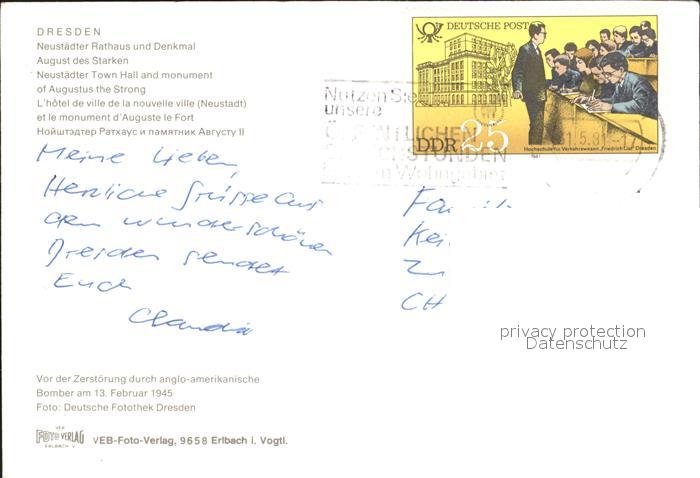 DRESDEN
Neustädter Rathaus und Denkmal
August des Starken
Neustädter Town Hall and monument
of Augustus the Strong
L'hôtel de ville de la nouvelle ville (Neustadt)
et le monument d'Auguste le Fort
Нойштэдтер Ратхаус и памятник Августу II
DEUTSCHE POST
DDR 25
Hochschule für Verkehrswesen „Friedrich List" Dresden
1981
Nutzen Sie
unsere
ÖFFENTLICHEN
Wohngebiet
1.5.81-17
Meine Lieben,
Herzliche Grüsse aus
dem wunderschönen
Dresden sendet
Euch
Claudia
Fa
Kei
Zu
CH
privacy protection
Datenschutz
Vor der Zerstörung durch anglo-amerikanische
Bomber am 13. Februar 1945
Foto: Deutsche Fotothek Dresden
VEB
FOTO VERLAG
ERLBACH V.
VEB-Foto-Verlag, 9658 Erlbach i. Vogtl.